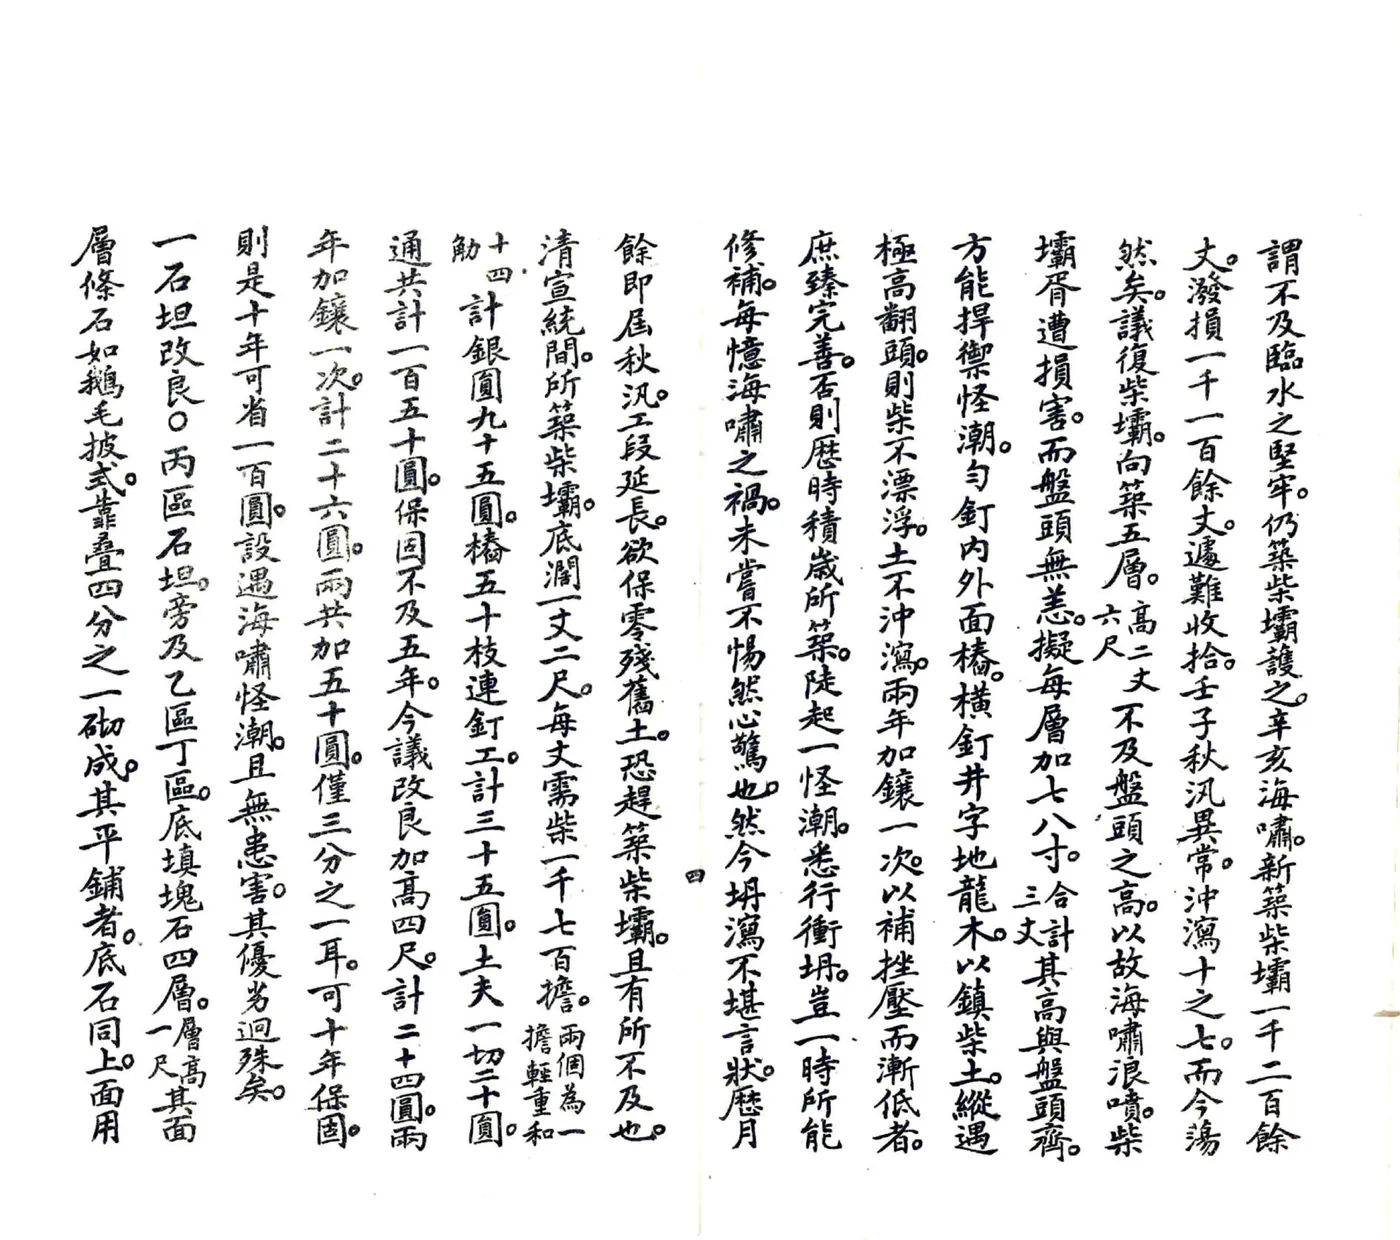 謂不及臨水之堅牢。仍築柴壩護之。辛亥海嘯。新築柴壩一千二百餘
丈。潑損一千一百餘丈。遽難收拾。壬子秋汛異常。沖瀉十之七。而今蕩
然矣。議復柴壩。向築五層。高二丈六尺不及盤頭之高。以故海嘯浪噴。柴
壩胥遭損害。而盤頭無恙。擬每層加七八寸。合計三丈其高與盤頭齊。
方能捍禦怪潮。勻釘內外面樁。橫釘井字地龍木。以鎮柴土。縱遇
極高翻頭。則柴不漂浮。土不沖瀉。兩年加鑲一次。以補挫壓而漸低者。
庶臻完善。否則歷時積歲所築。陡起一怪潮。悉行衝坍。豈一時所能
修補。每憶海嘯之禍。未嘗不惕然心驚也。然今坍瀉不堪言狀。歷月
四
餘即屆秋汛。工段延長。欲保零殘舊土。恐趕築柴壩。且有所不及也。
清宣統間。所築柴壩。底濶一丈二尺。每丈需柴一千七百擔。兩個為一擔輕重和
十四觔計銀圓九十五圓。樁五十枝連釘工。計三十五圓。土夫一切二十圓。
通共計一百五十圓。保固不及五年。今議改良加高四尺。計二十四圓。兩
年加鑲一次。計二十六圓。兩共加五十圓。僅三分之一耳。可十年保固。
則是十年可省一百圓。設遇海嘯怪潮。且無患害。其優劣迥殊矣。
一石坦改良○丙區石坦。旁及乙區丁區。底填塊石四層。一層高一尺其面
層條石如鵝毛披式。靠疊四分之一砌成。其平鋪者。底石同上。面用